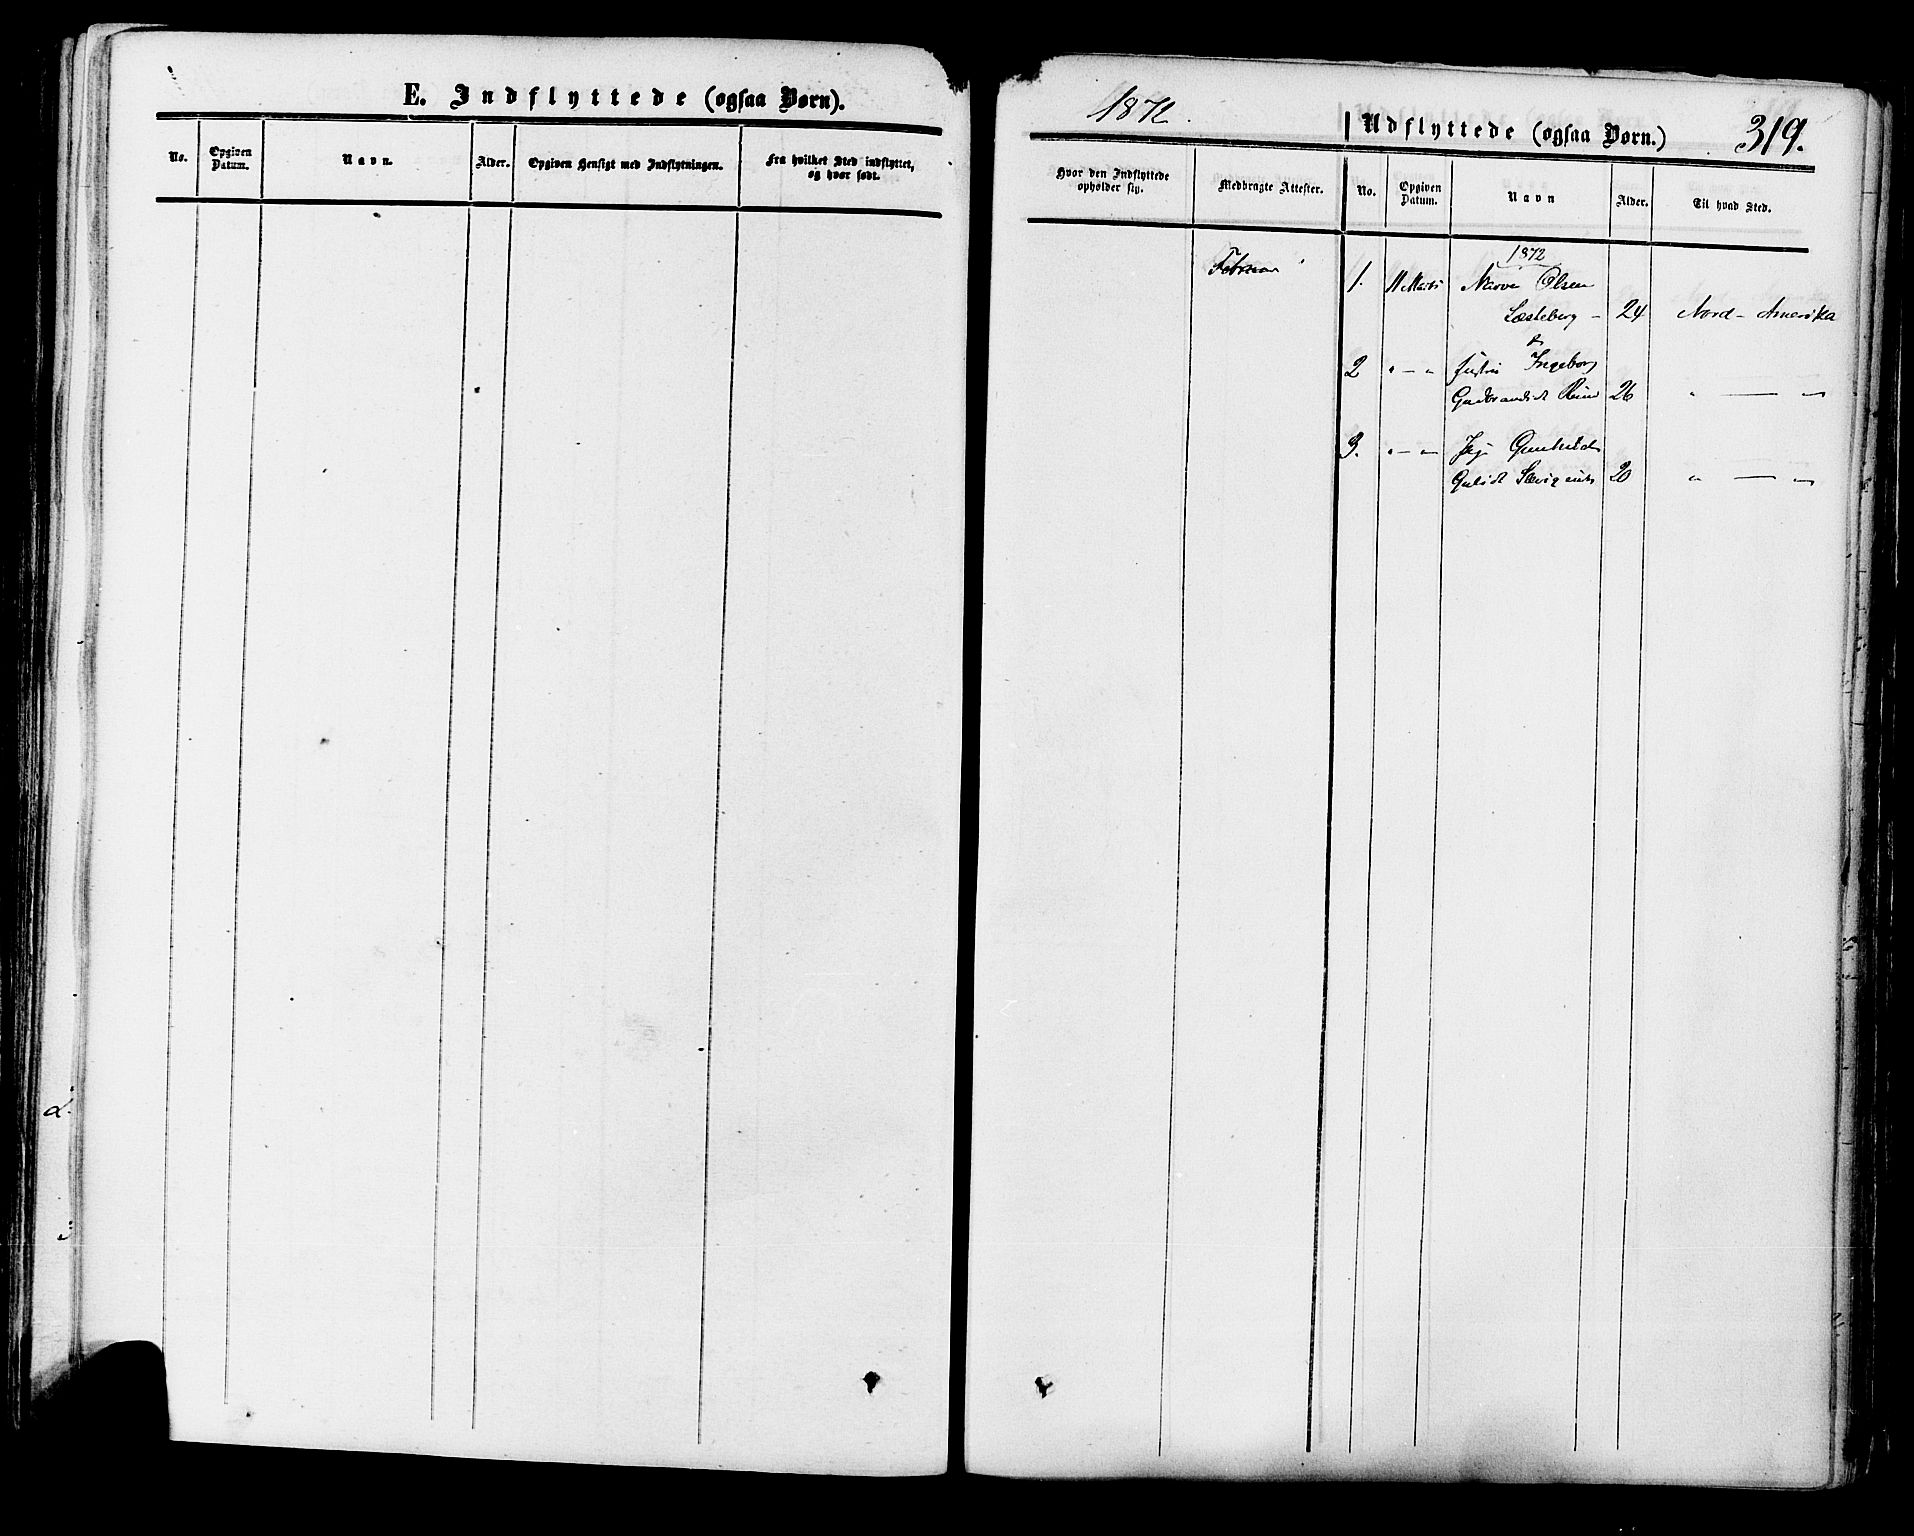 E. Indflyttede (ogsaa Børn).
No.
Opgiven Datum.
Navn.
Alder.
Opgiven Hensigt med Indflytningen.
Fra hvilket Sted indflyttet, og hvor født.
1872.
Udflyttede (ogsaa Børn.)
319.
Hvor den Indflyttede opholder sig.
Medbragte Attester.
No.
Opgiven Datum.
Navn
Alder.
Til hvad Sted.
1872
1. 11 Marts Olsen
24 Nord-Amerika
2 " — " Ingeborg
26 " — "
3. " — "
20 " — "